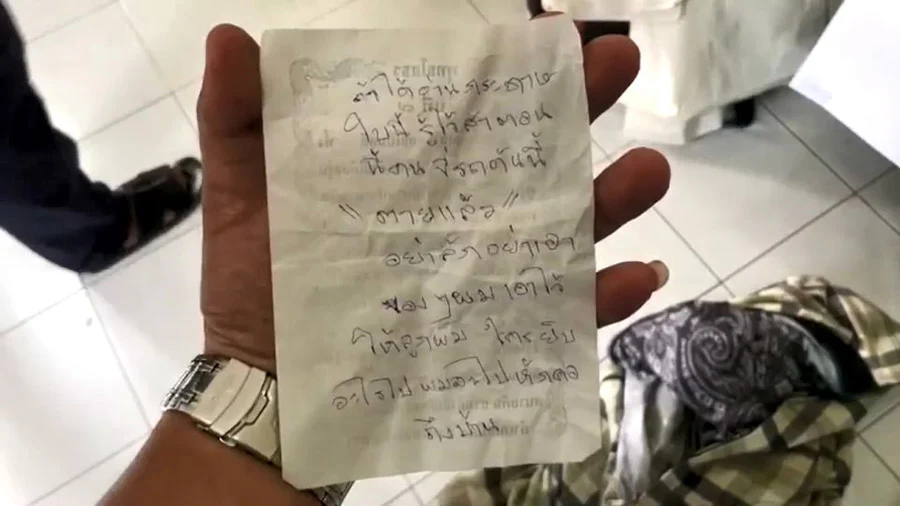 ถ้าได้อ่านกระดาษ
ใบนี้ รู้ไว้สาตอน
นี้คน ขี่รถคันนี้
"ตายแล้ว"
อย่าลักอย่าเอา
ของๆผมเอาไว้
ให้ลูกผม ใครยิบ
อะไรไป ผมจะไปหักคอ
ถึงบ้าน